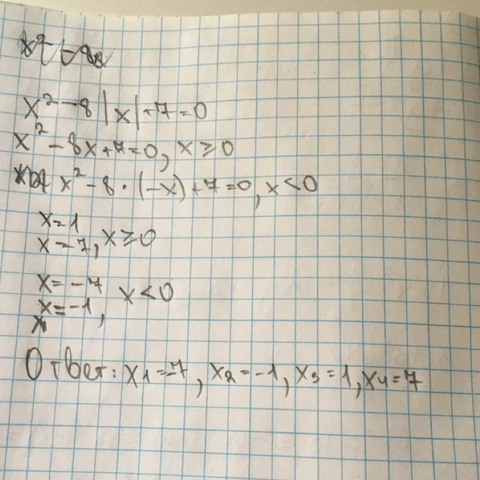 x² - 8|x| + 7 = 0
x² - 8x + 7 = 0, x ≥ 0
x² - 8 · (-x) + 7 = 0, x < 0
x = 1
x = 7, x ≥ 0
x = -7
x = -1, x < 0
x
Ответ: x₁ = -7, x₂ = -1, x₃ = 1, x₄ = 7